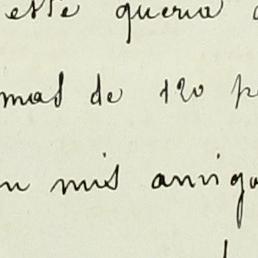 este queria
mas de 120 p
n mis amigo